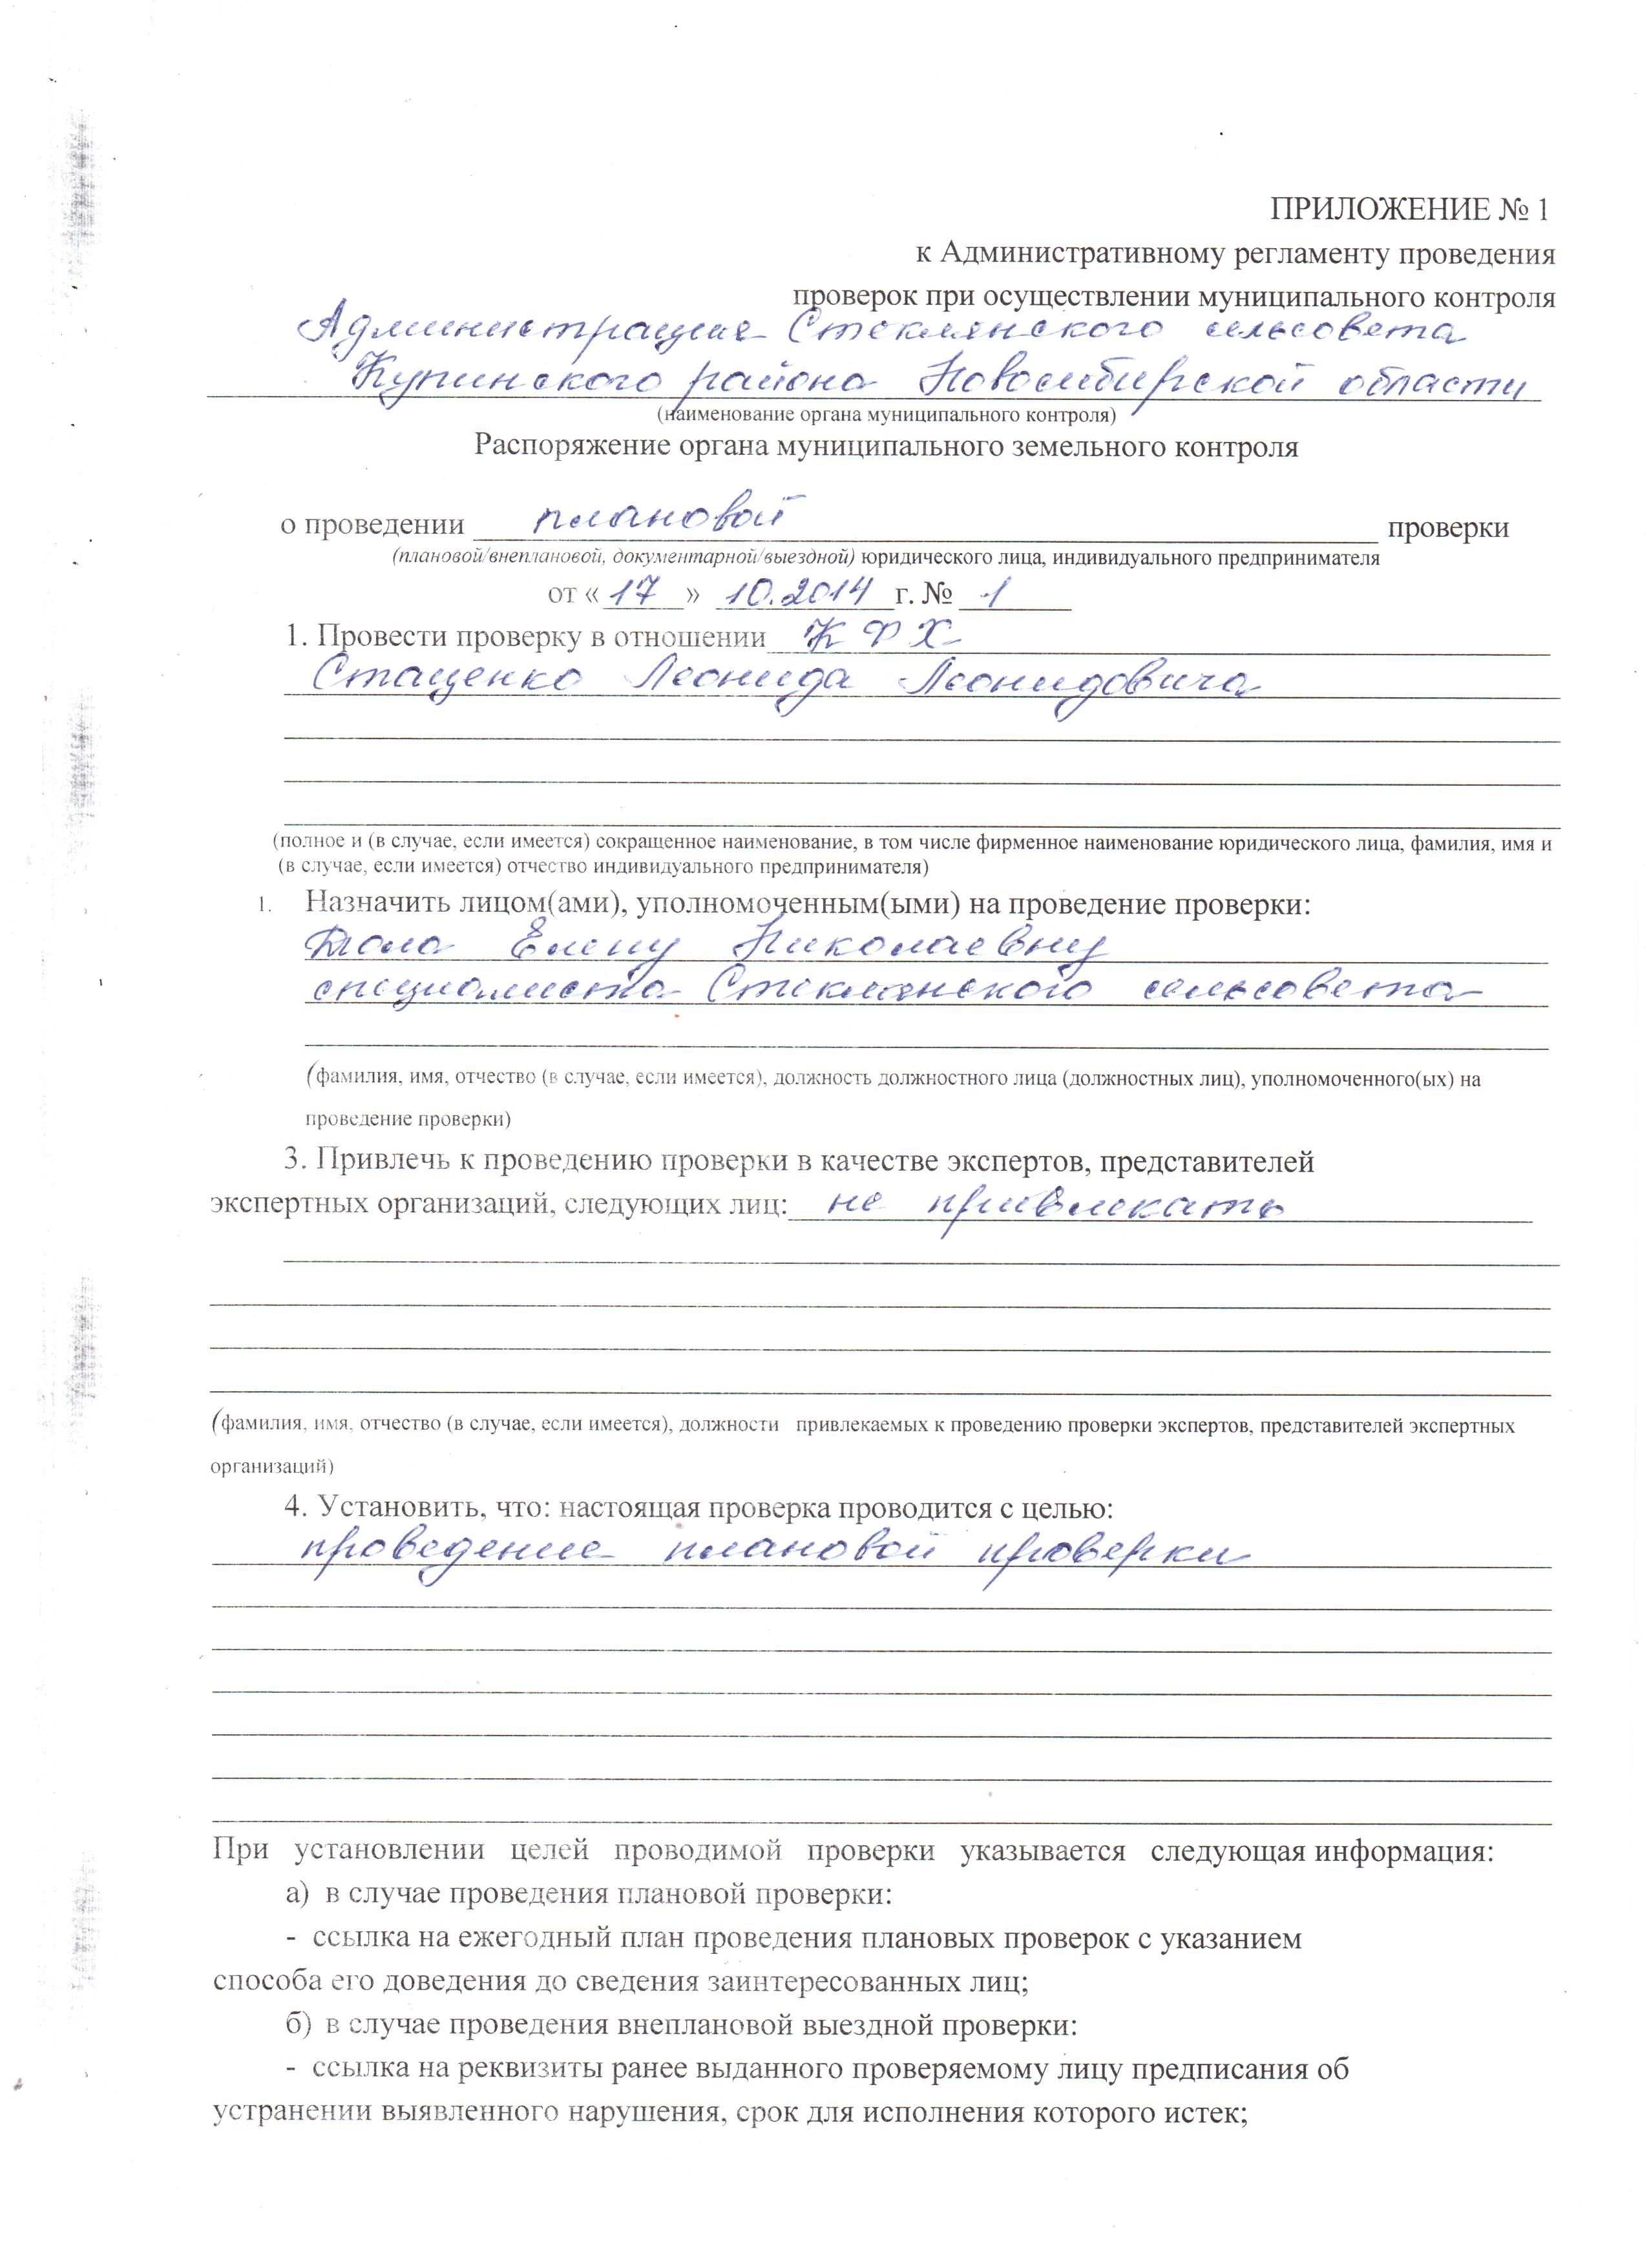 ПРИЛОЖЕНИЕ № 1
к Административному регламенту проведения
проверок при осуществлении муниципального контроля
Администрация Стеклянского сельсовета
Купинского района Новосибирской области
(наименование органа муниципального контроля)
Распоряжение органа муниципального земельного контроля
о проведении плановой проверки
(плановой/внеплановой, документарной/выездной) юридического лица, индивидуального предпринимателя
от « 17 » 10.2014 г. № 1
1. Провести проверку в отношении КФХ
Стаценко Леонида Леонидовича
(полное и (в случае, если имеется) сокращенное наименование, в том числе фирменное наименование юридического лица, фамилия, имя и
(в случае, если имеется) отчество индивидуального предпринимателя)
1. Назначить лицом(ами), уполномоченным(ыми) на проведение проверки:
Елену Николаевну
специалиста Стеклянского сельсовета
(фамилия, имя, отчество (в случае, если имеется), должность должностного лица (должностных лиц), уполномоченного(ых) на
проведение проверки)
3. Привлечь к проведению проверки в качестве экспертов, представителей
экспертных организаций, следующих лиц: не привлекать
(фамилия, имя, отчество (в случае, если имеется), должности привлекаемых к проведению проверки экспертов, представителей экспертных
организаций)
4. Установить, что: настоящая проверка проводится с целью:
проведение плановой проверки
При установлении целей проводимой проверки указывается следующая информация:
а) в случае проведения плановой проверки:
- ссылка на ежегодный план проведения плановых проверок с указанием
способа его доведения до сведения заинтересованных лиц;
б) в случае проведения внеплановой выездной проверки:
- ссылка на реквизиты ранее выданного проверяемому лицу предписания об
устранении выявленного нарушения, срок для исполнения которого истек;